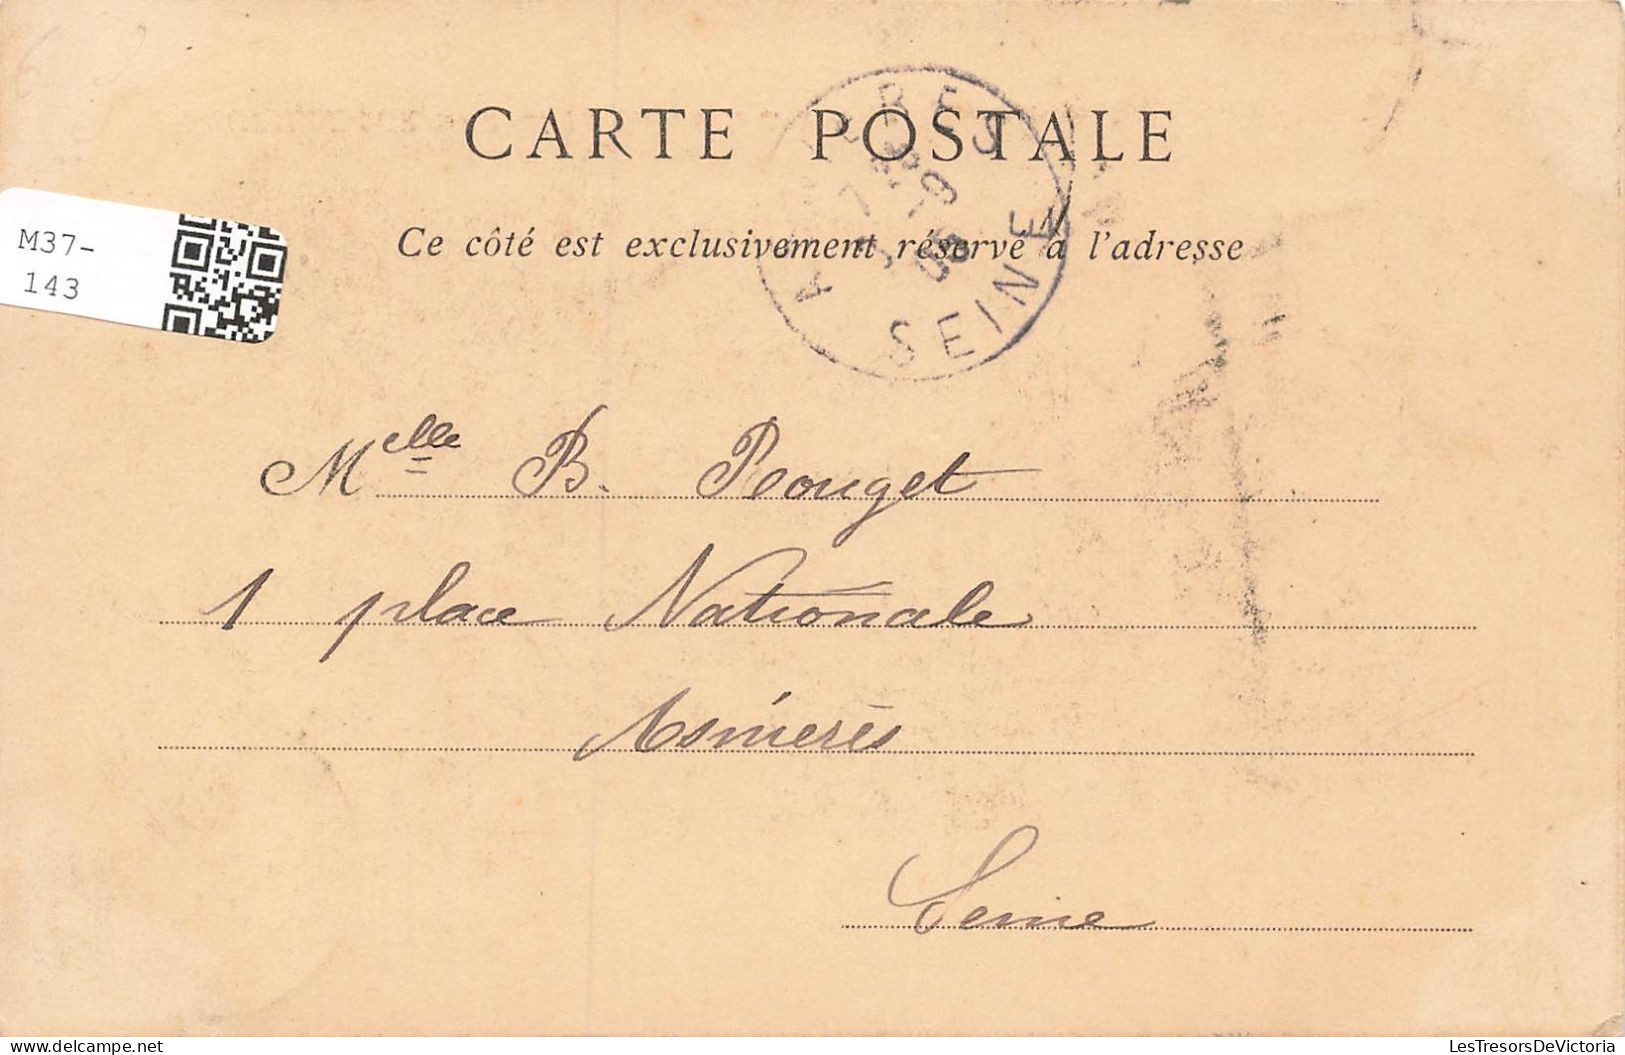 CARTE POSTALE
Ce côté est exclusivement réservé à l'adresse
M37-
143
SEINE
Melle B. Pouget
1 place Nationale
Asnières
Seine
LesTresorsDeVictoria
www.delcampe.net